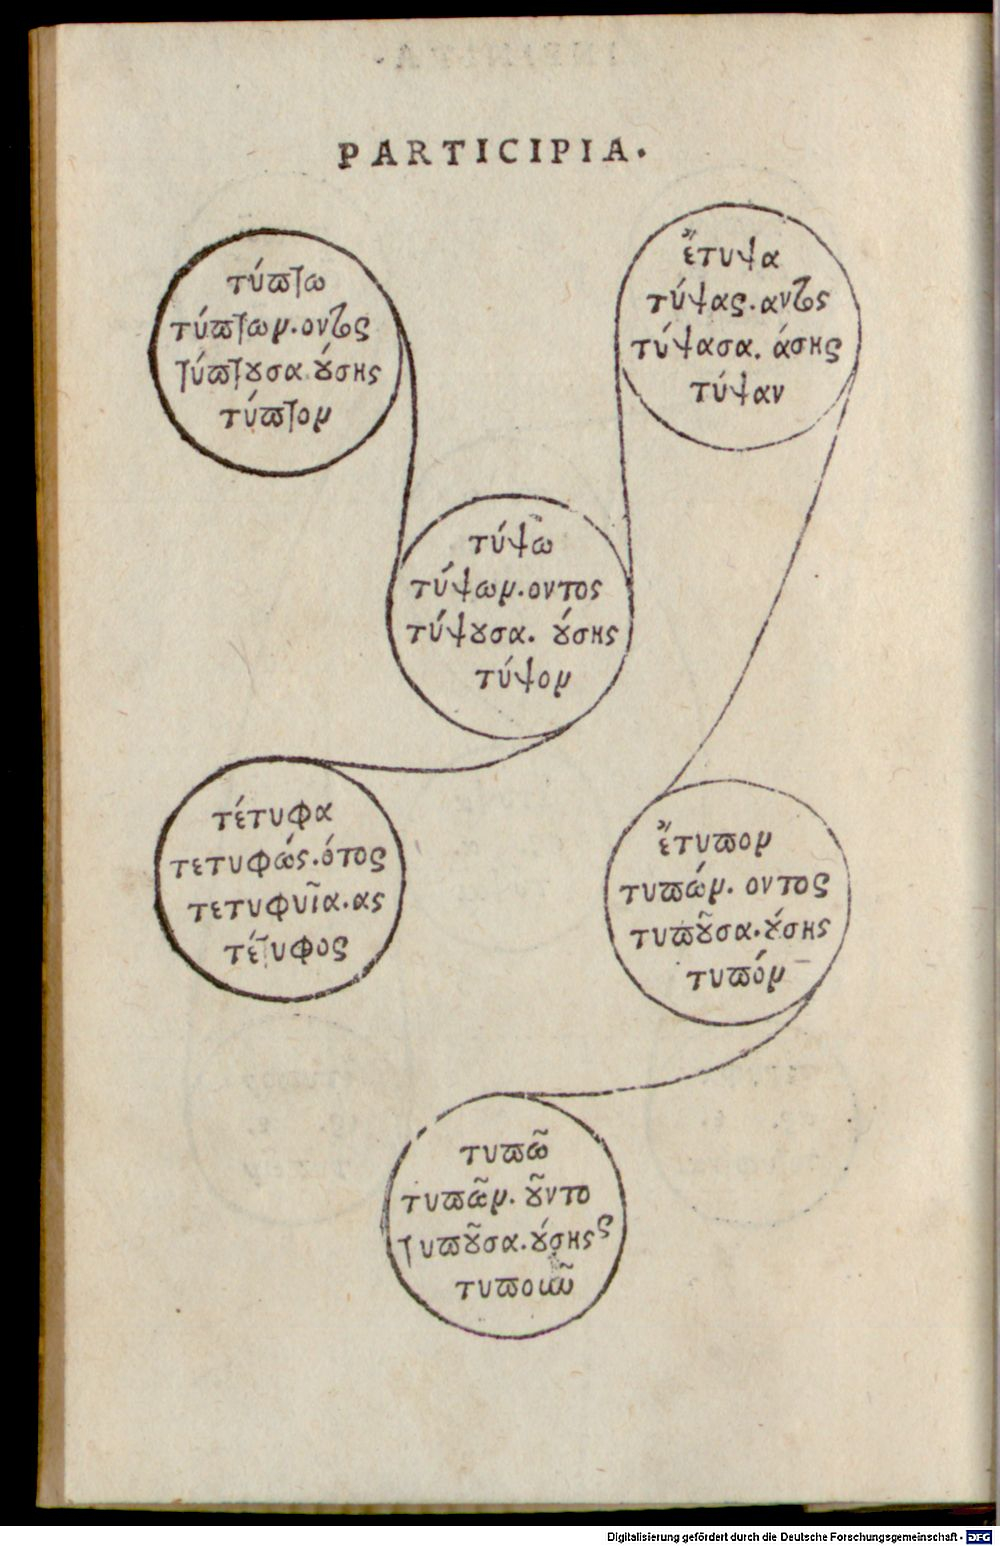 PARTICIPIA.
τύπτω
τύπτων.οντος
τύπτουσα.ούσης
τύπτον
ἔτυψα
τύψας.αντος
τύψασα.άσης
τύψαν
τύψω
τύψων.οντος
τύψουσα. ούσης
τύψον
τέτυφα
τετυφώς.ότος
τετυφυῖα.ας
τέτυφος
ἔτυπον
τυπών. οντος
τυποῦσα.ούσης
τυπόν
τυπῶ
τυπῶν. οῦντο
τυποῦσα.ούσηςς
Digitalisierung gefördert durch die Deutsche Forschungsgemeinschaft - DFG